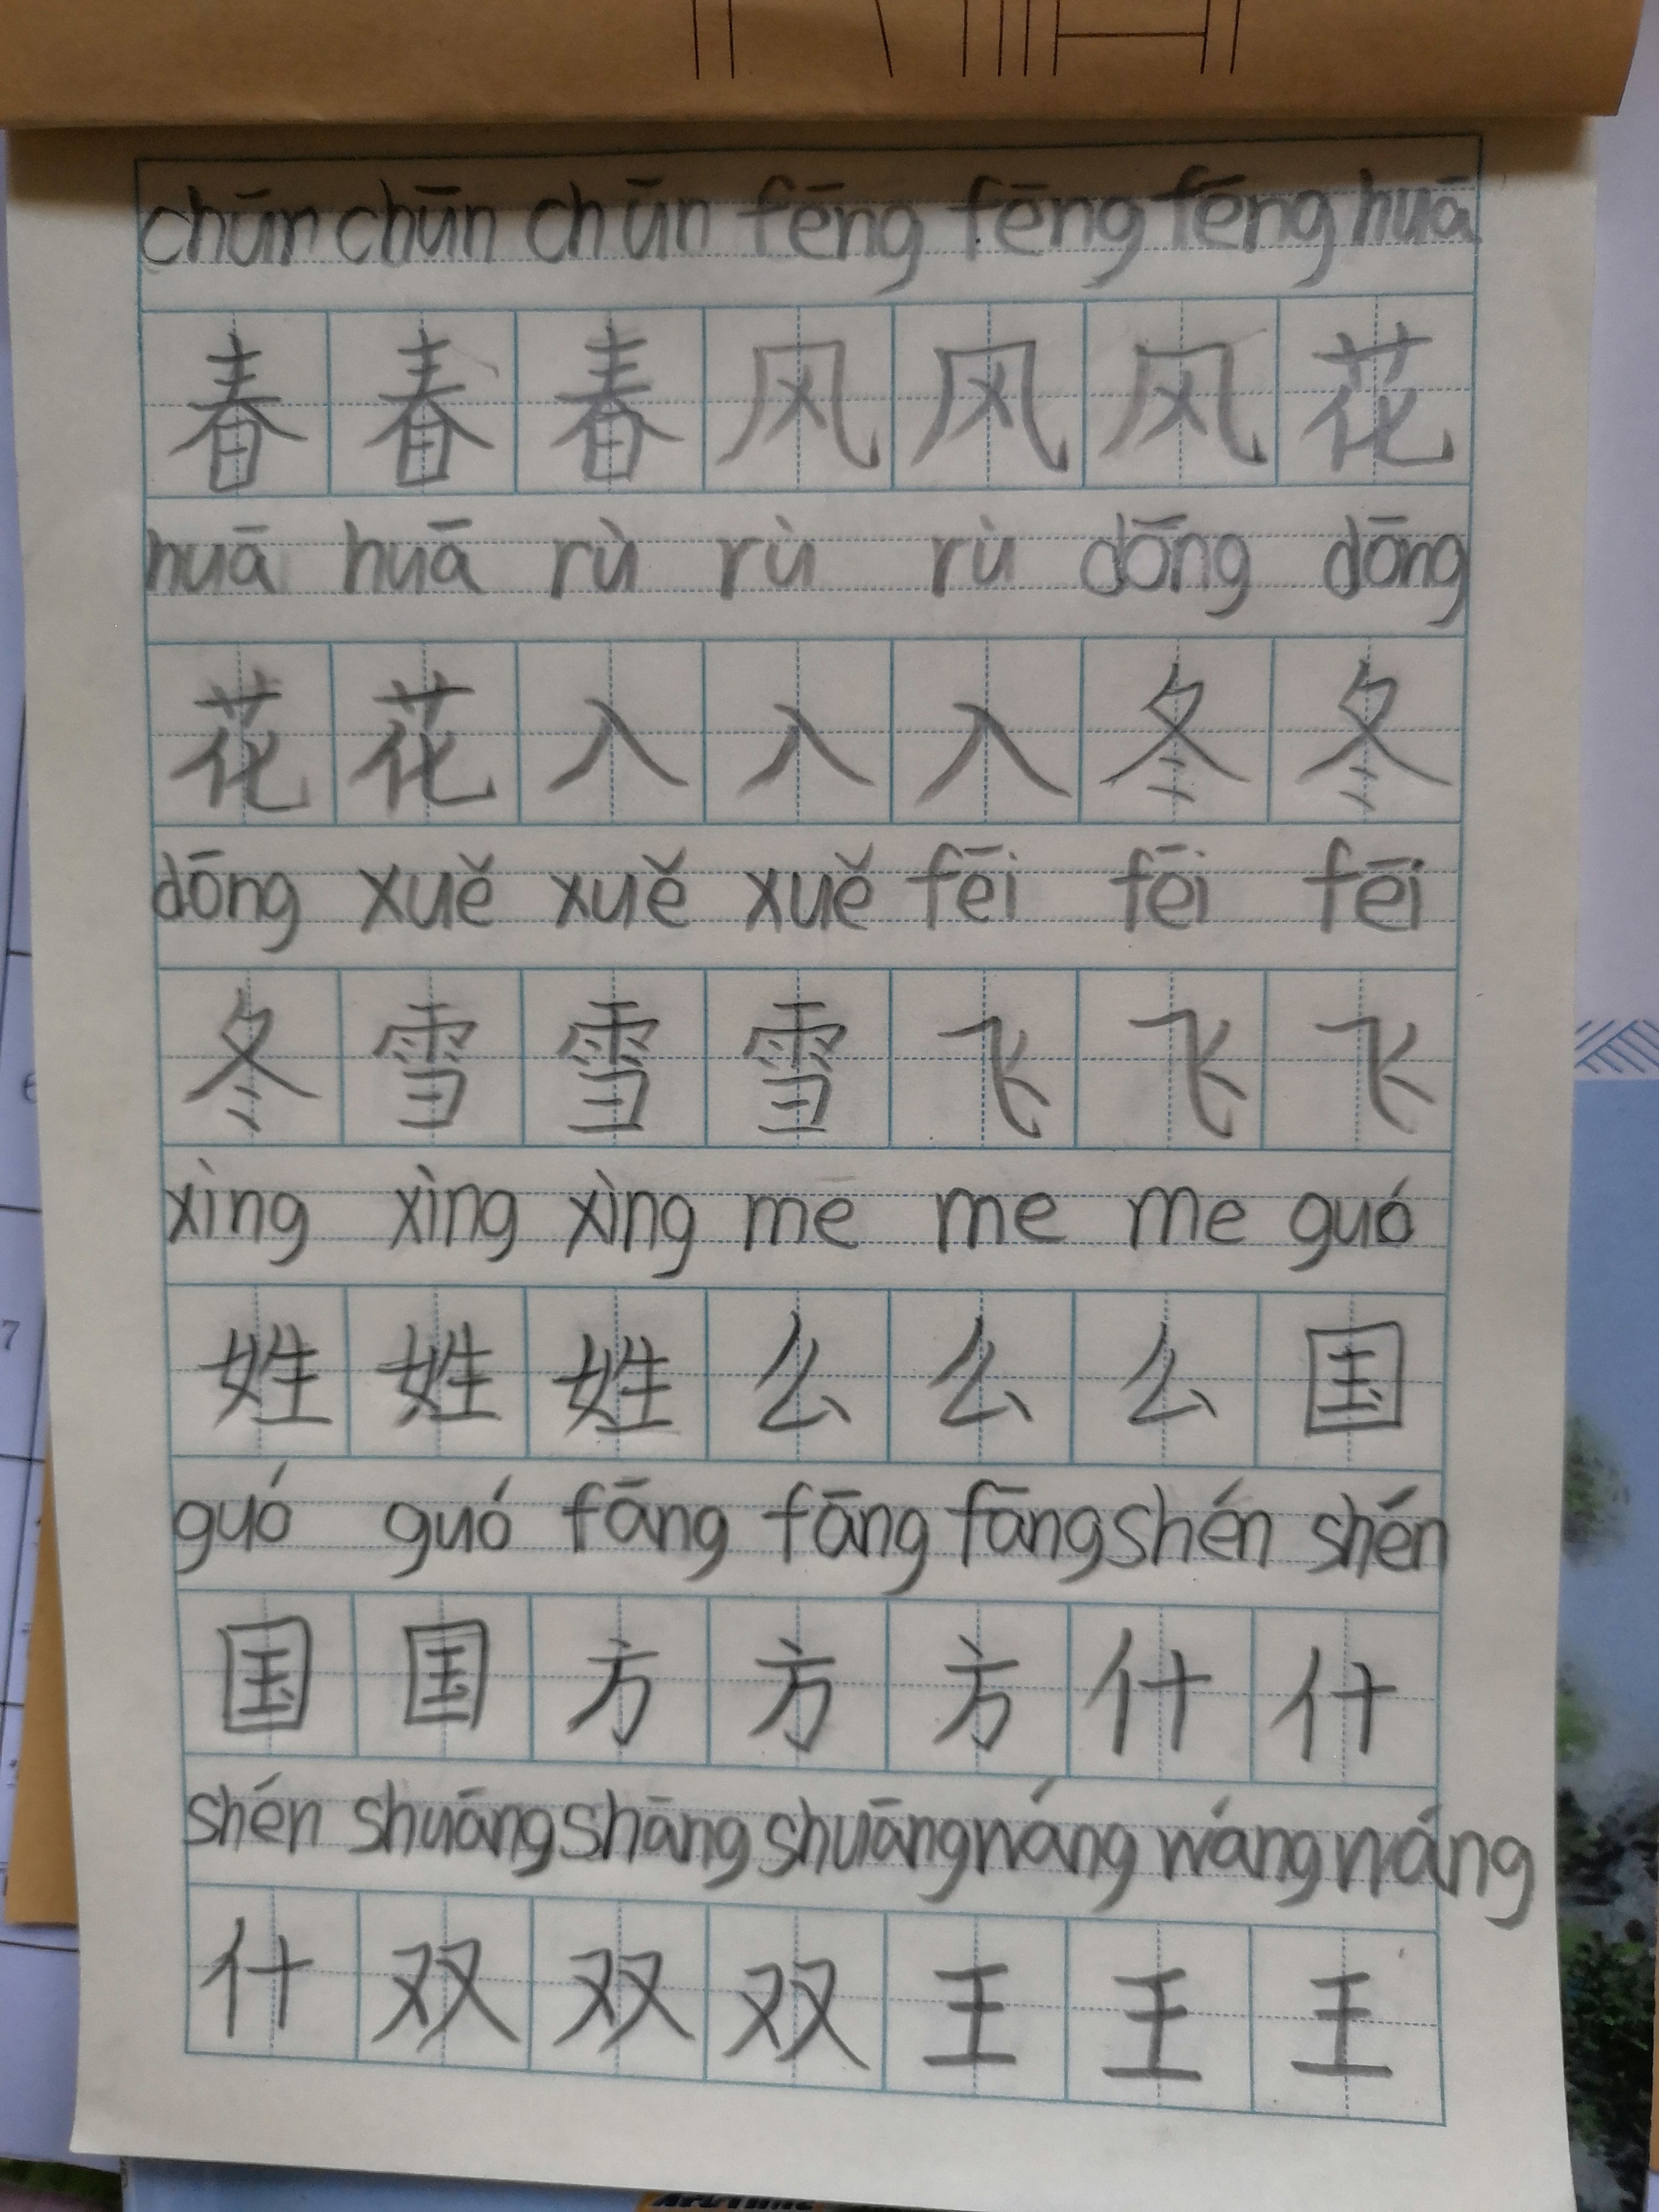 chūn chūn chūn fēng fēng fēng huā
春 春 春 风 风 风 花
huā huā rù rù rù dōng dōng
花 花 入 入 入 冬 冬
dōng xuě xuě xuě fēi fēi fēi
冬 雪 雪 雪 飞 飞 飞
xìng xìng xìng me me me guó
姓 姓 姓 么 么 么 国
guó guó fāng fāng fāng shén shén
国 国 方 方 方 什 什
shén shuāng shāng shuāng wáng wáng wáng
什 双 双 双 王 王 王
6
7